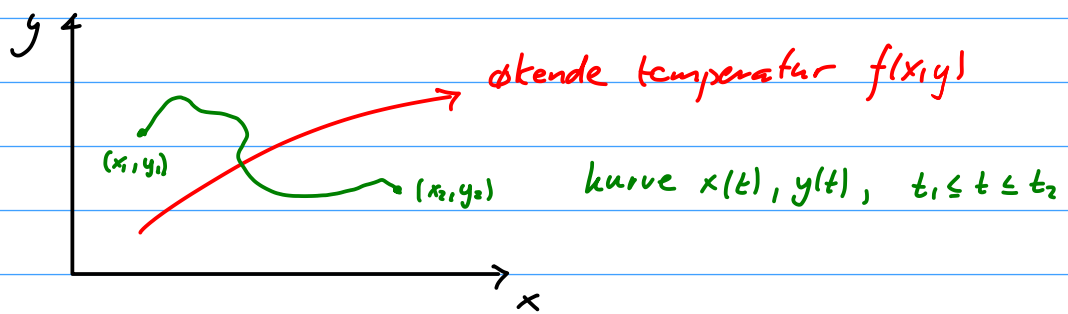 y
økende temperatur f(x,y)
(x₁,y₁)
(x₂,y₂)
kurve x(t), y(t), t₁ ≤ t ≤ t₂
x